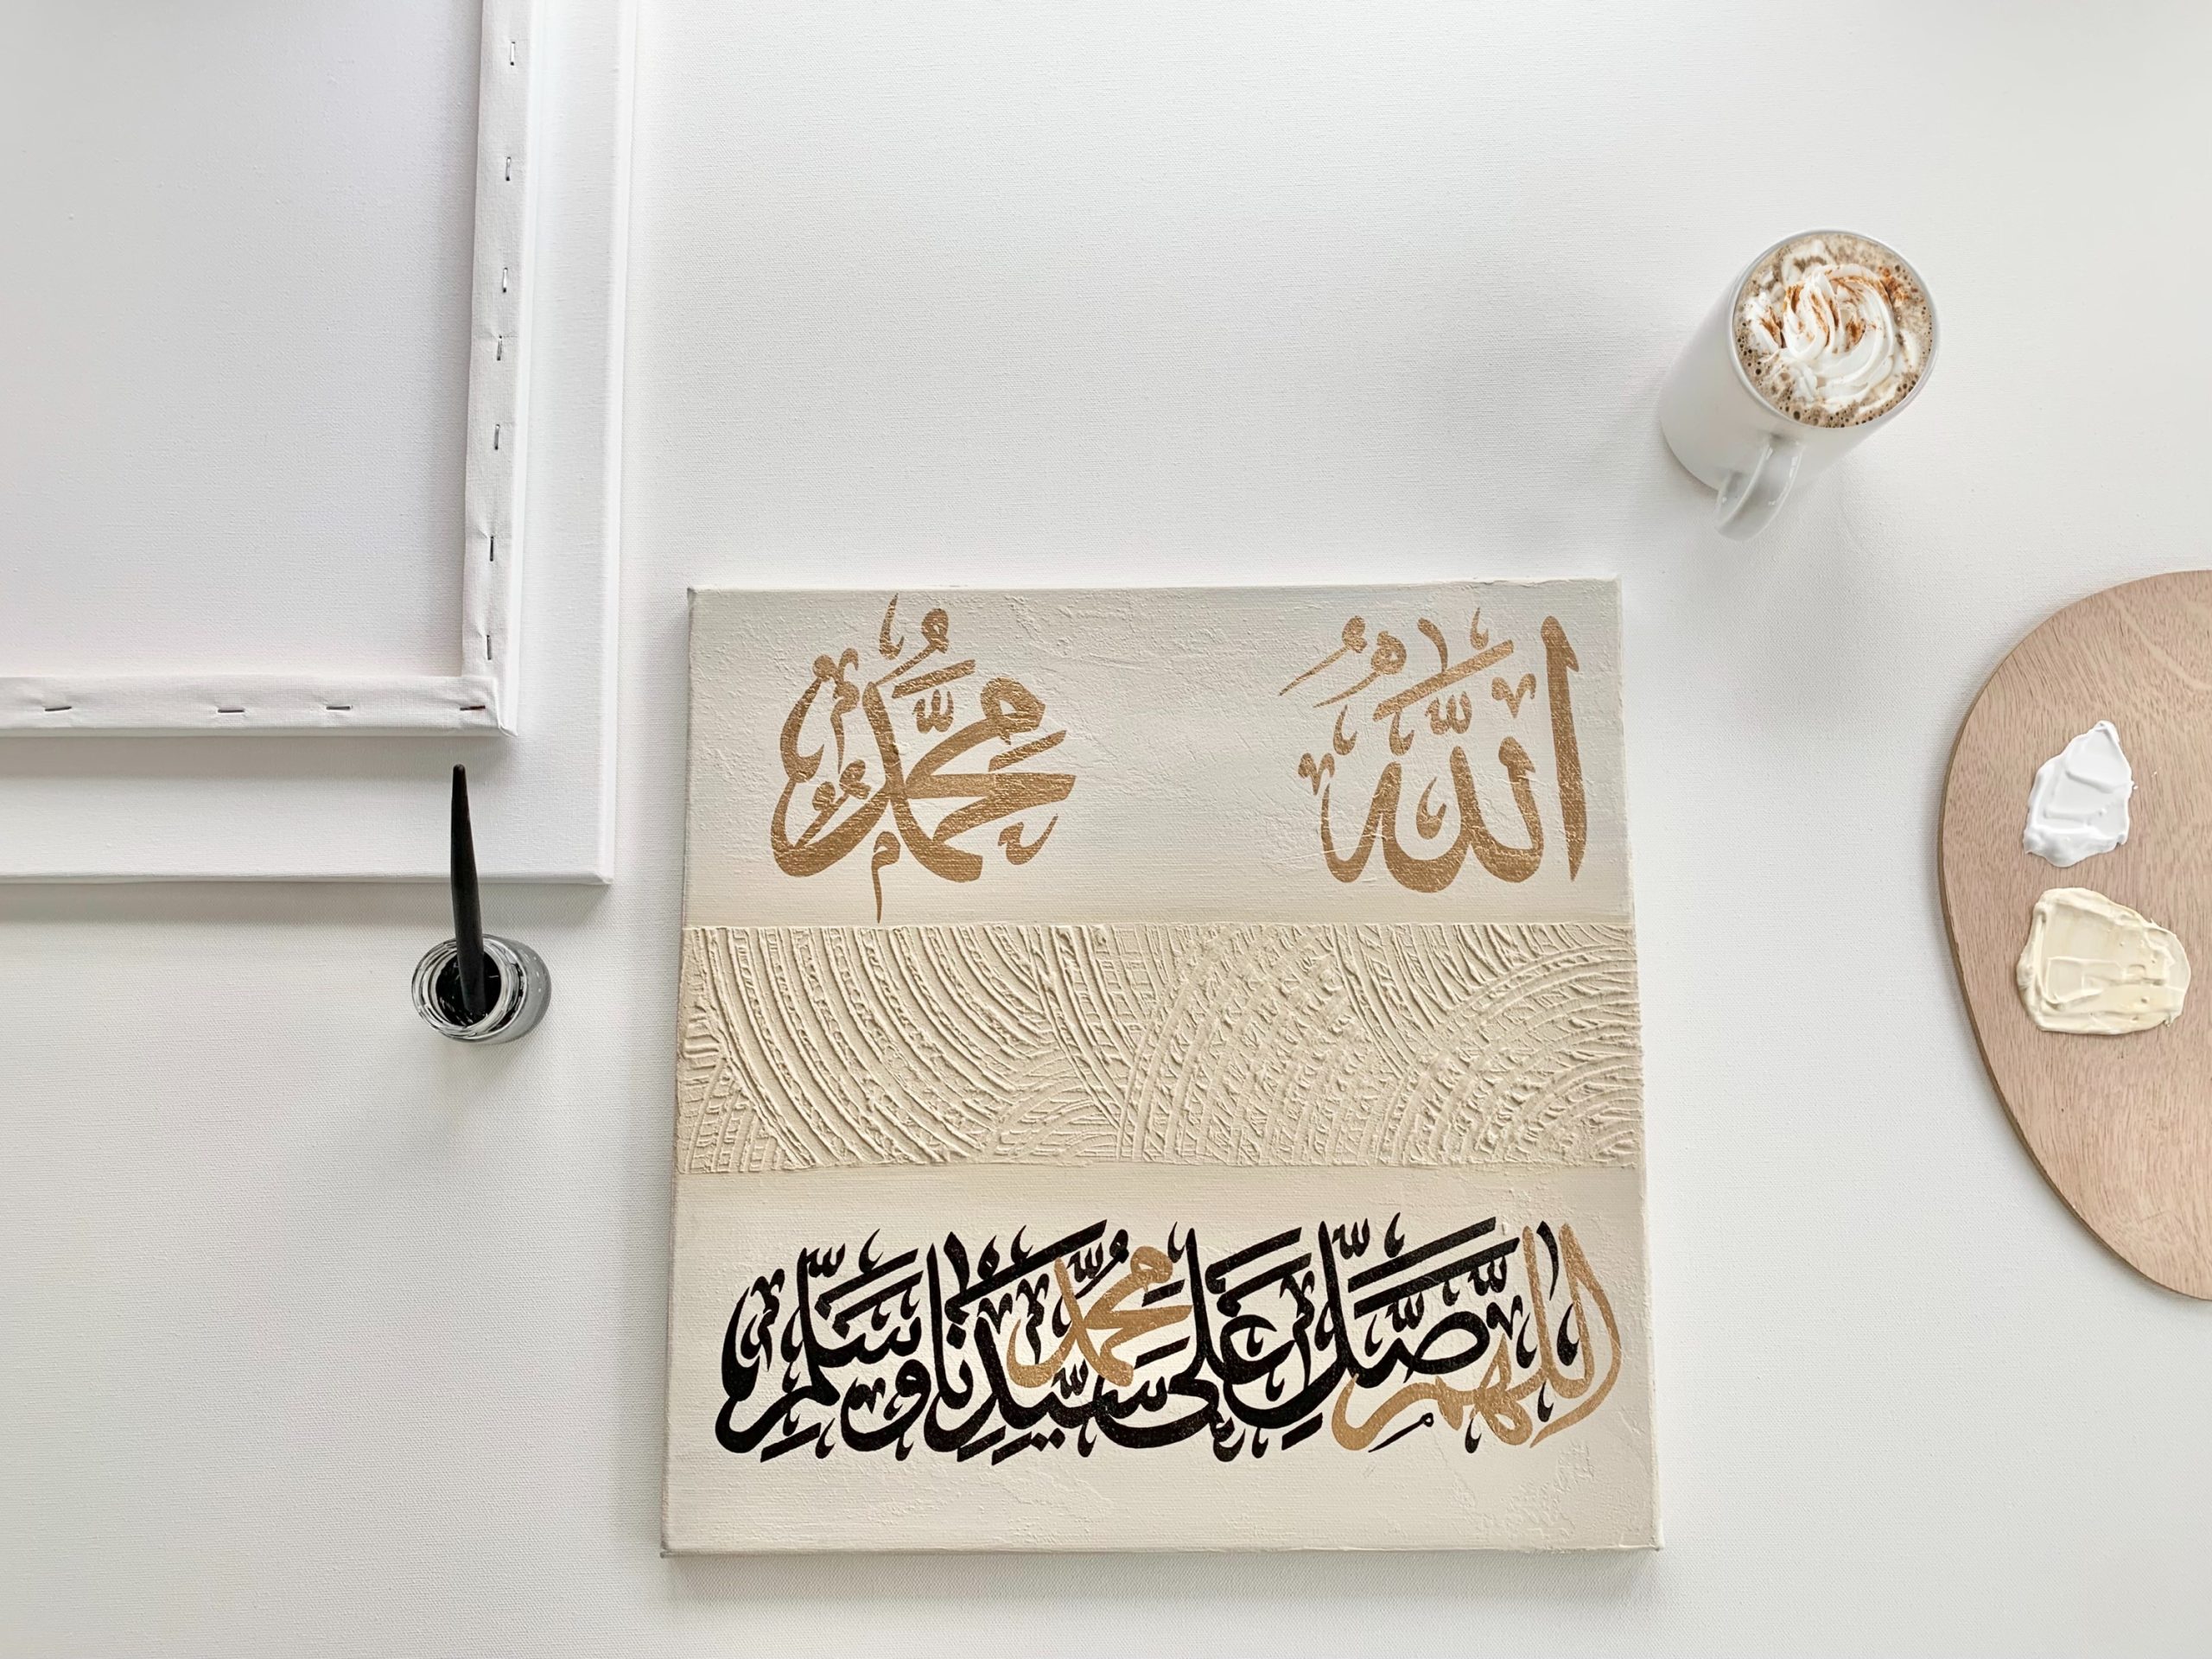 اللَّهُ مُحَمَّدٌ
اللهم صَلِّ عَلَى سَيِّدِنَا مُحَمَّد وَسَلِّم